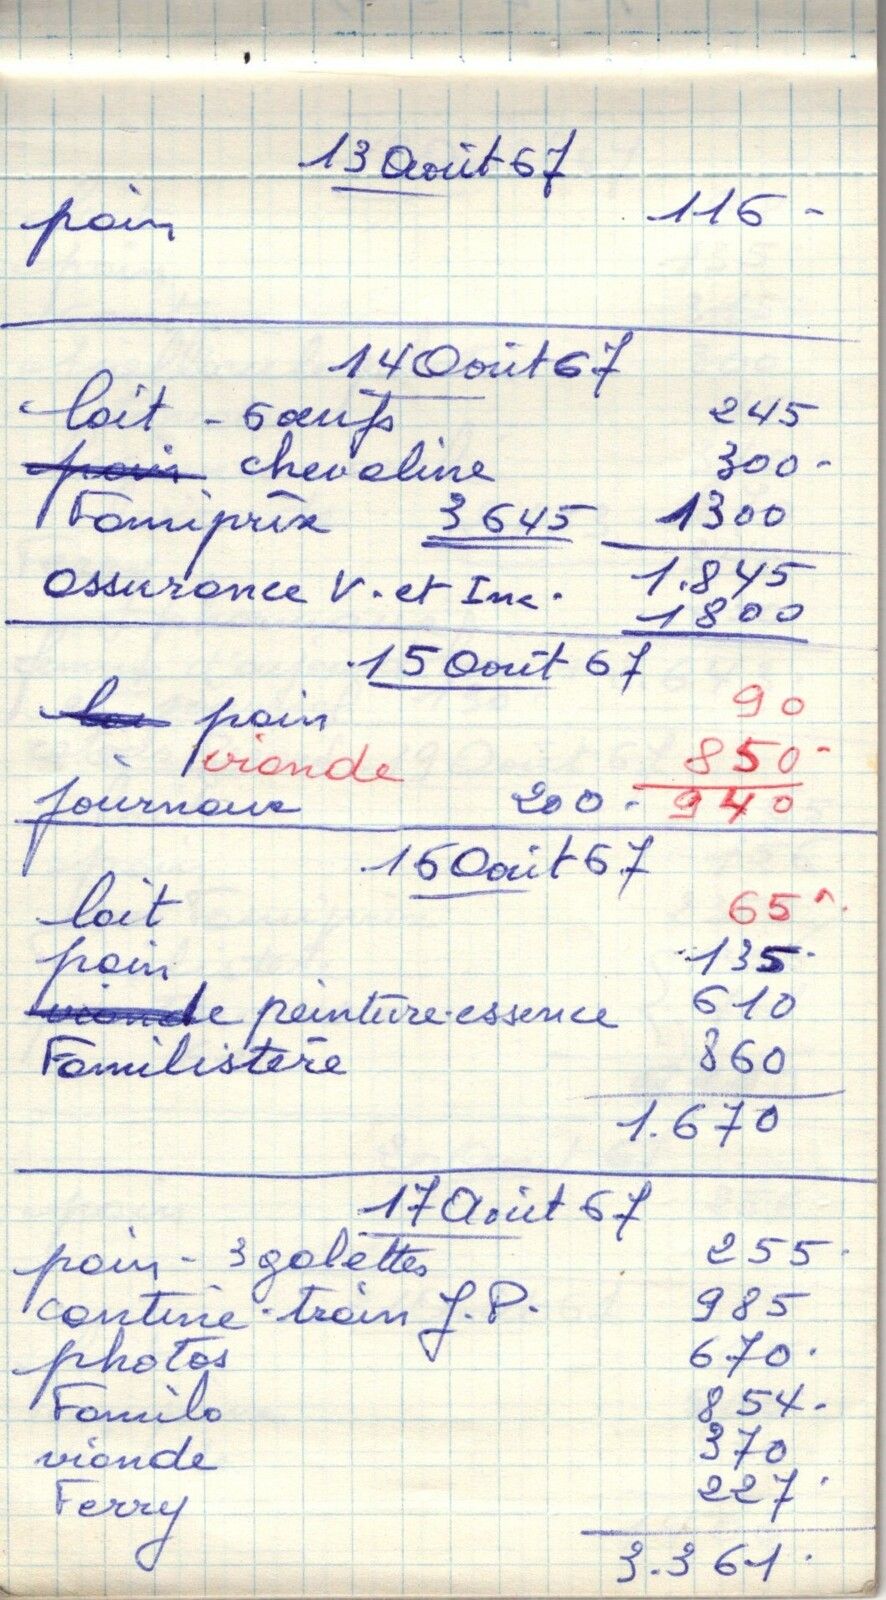 13 Août 67
pain 116 -
14 Août 67
lait - 6 œufs 245
pain chevaline 300 -
Familprix 3645 1300
1.845
assurance V. et Inc. 1800
15 Août 67
pain 90
viande 850 -
journaux 200 - 940
16 Août 67
lait 65
pain 135 -
viande peinture-essence 610
Familistère 860
1.670
17 Août 67
pain - 3 galettes 255 -
cantine - train J.P. 985
photos 670 -
Familo 854 -
viande 370
Ferry 227 -
3.361 -